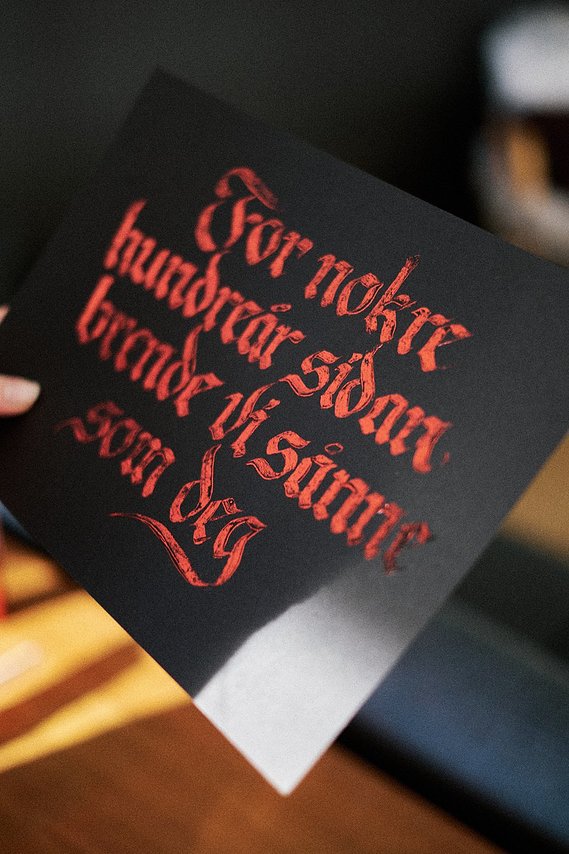 For nokre
hundreår sidan
brende vi sånne
som deg